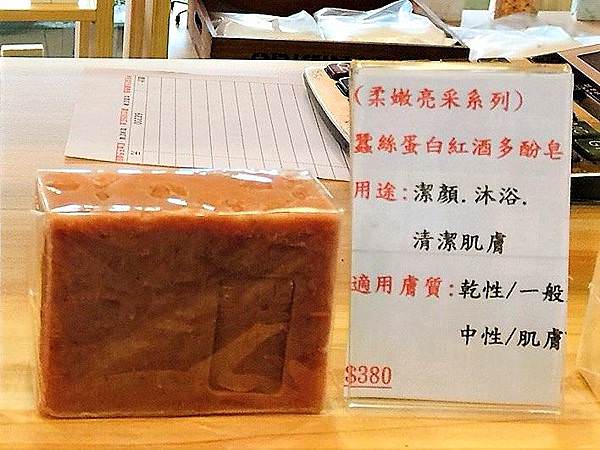 (柔嫩亮采系列)
蠶絲蛋白紅酒多酚皂
用途:潔顏.沐浴.
清潔肌膚
適用膚質:乾性/一般
中性/肌膚
$380